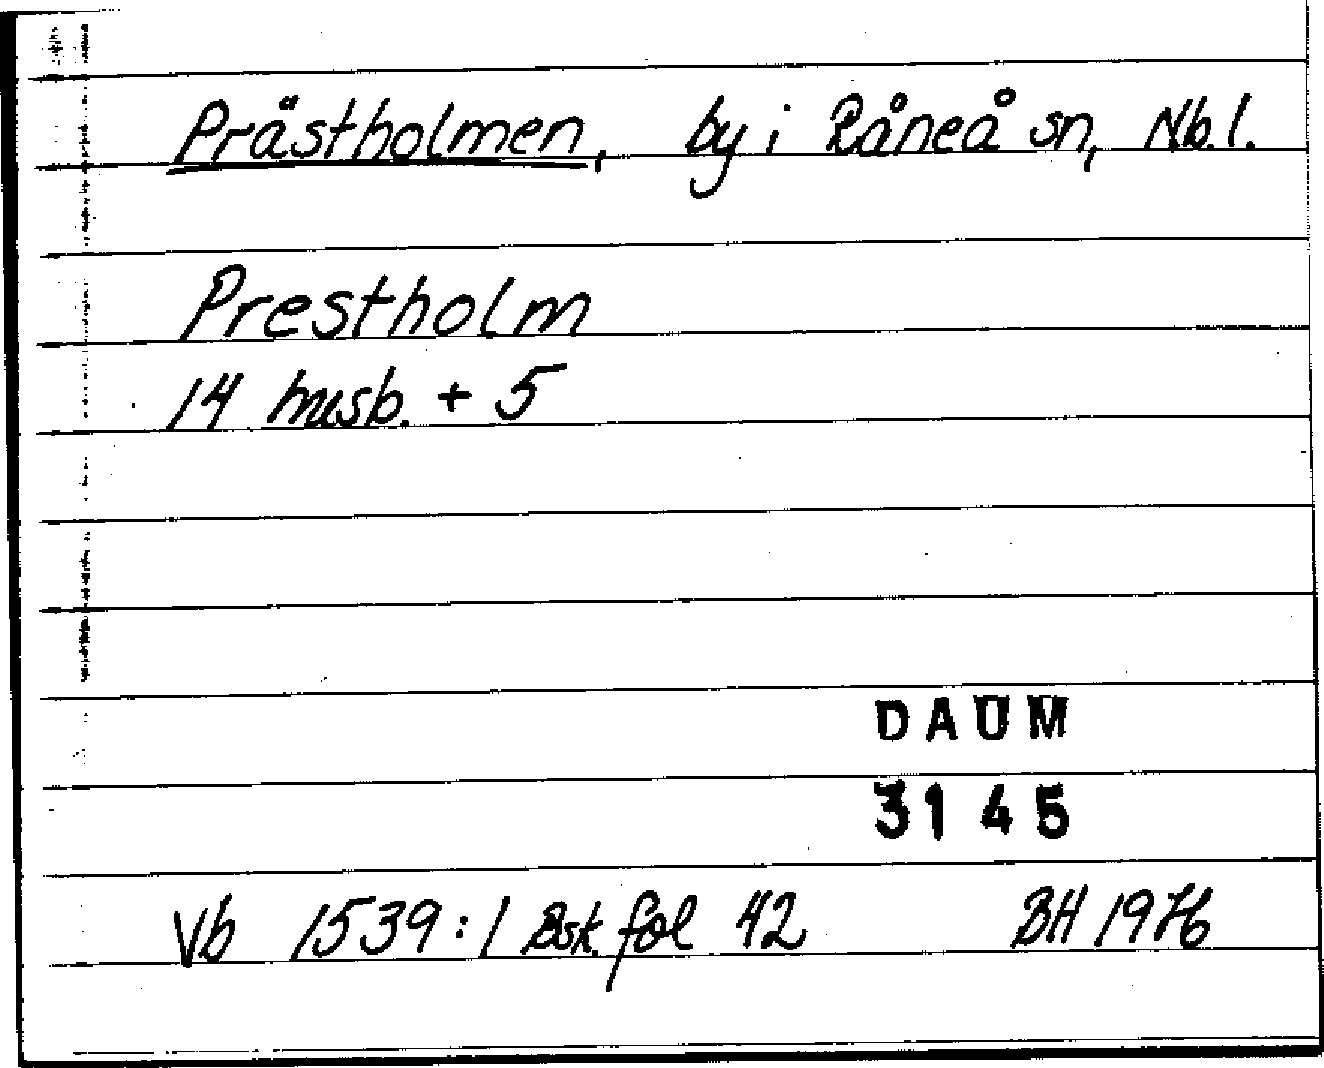 Prästholmen, by i Råneå sn, Nb.l.
Prestholm
14 husb. + 5
DAUM
3145
Vb 1539:1 Bsk. fol 42 BH 1976